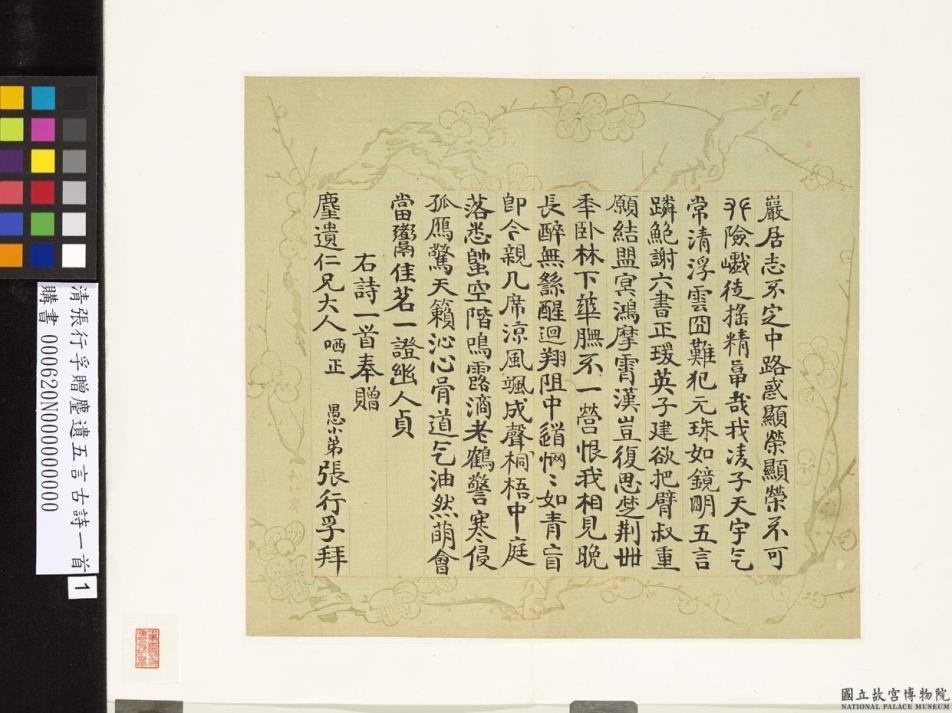 巖居志不定中路惑顯榮顯榮不可
險巇徒搖精哉我淩子天宇气
常清浮雲囧難犯元珠如鏡朙五言
鮑謝六書正瑗英子建欲把臂叔重
願結盟冥鴻摩霄漢豈復思楚荆卌
秊卧林下膴不一營恨我相見晚
長醉無繇醒迴翔阻中惘〻如青盲
卽今親几席涼風颯成聲桐梧中庭
落悉空階鳴露滴老鶴警寒侵
孤鴈驚天籟沁心骨道气油然萌會
當鬻佳茗一證幽人貞
右詩一首奉贈
麈遺仁兄大人哂正 愚小弟張行孚拜
清張行孚贈麈遺五言古詩一首 1
購書 000620N000000000
國立故宮博物院
NATIONAL PALACE MUSEUM